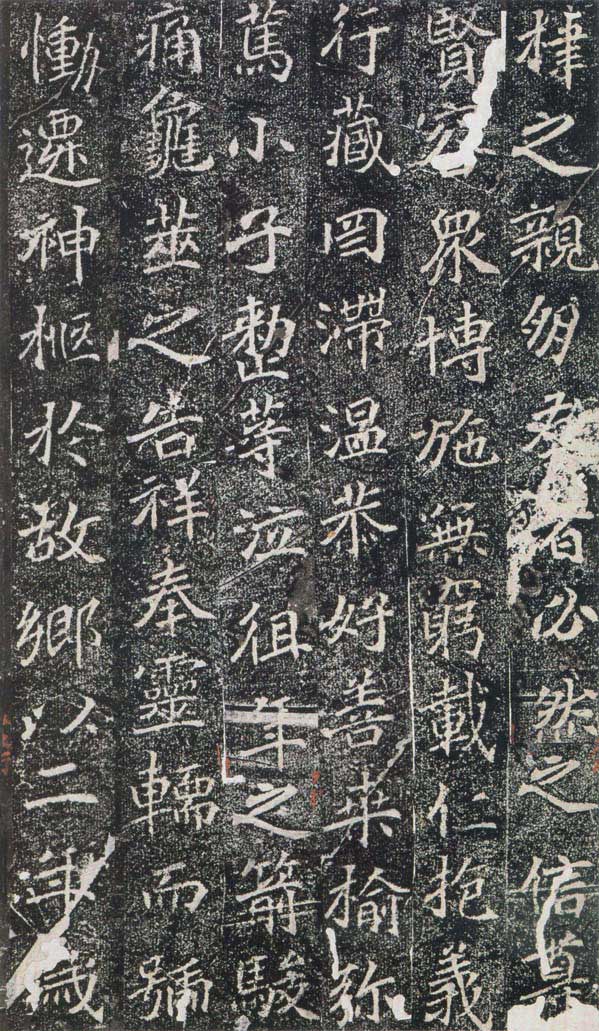 棣之親朋友必然之信尊
賢容眾博施無窮載仁抱義
行藏罔滯温恭好善桒榆弥
篤小子整等泣徂年之箭駿
痛龜筮之告祥奉靈轜而號
慟遷神柩於故鄉以二年歲